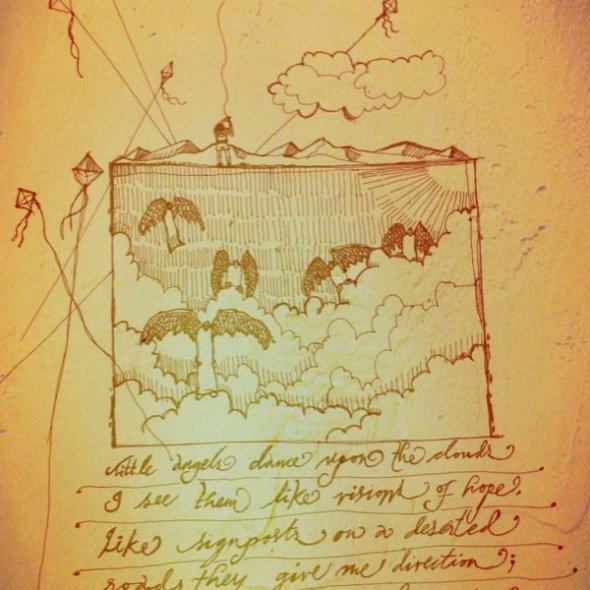 little angels dance upon the clouds
I see them like visions of hope.
Like signposts on a deserted
roads they give me direction;